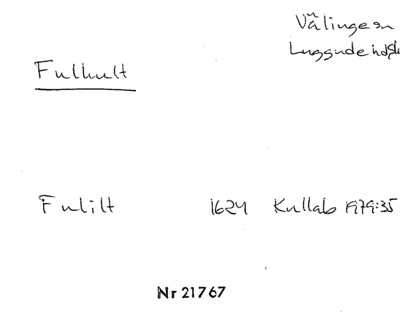 Välinge sn
Luggude hd
Fulhult
Fulilt 1624 Kullab 1979:35
Nr 21767